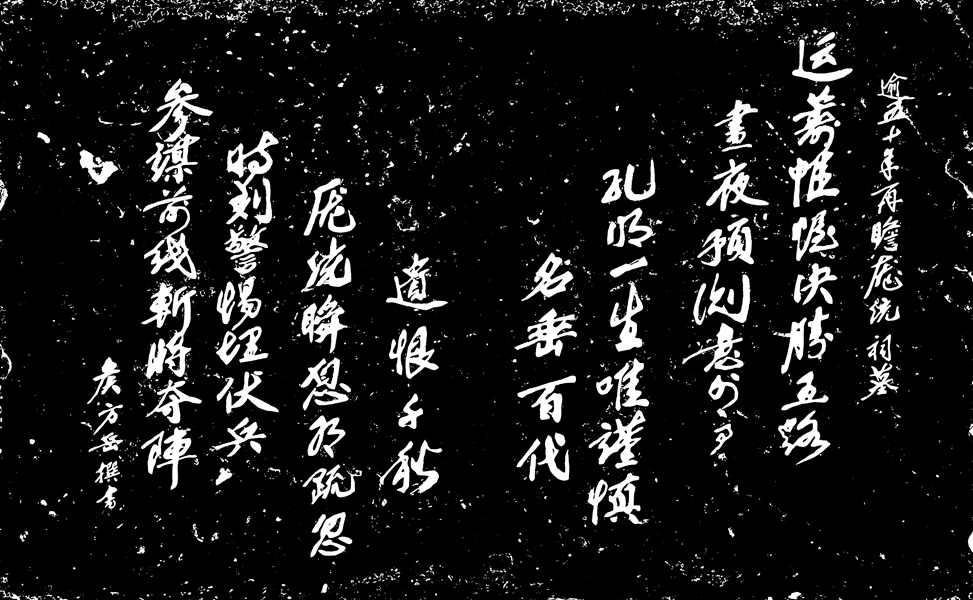 逾五十年再瞻庞统祠墓
运筹帷幄决胜五路
晝夜預测意外事
孔明一生唯謹慎
名垂百代
遺恨千秋
庞统瞬息有疏忽
时刻警惕埋伏兵
参謀前线斬将夺陣
侯方岳撰書